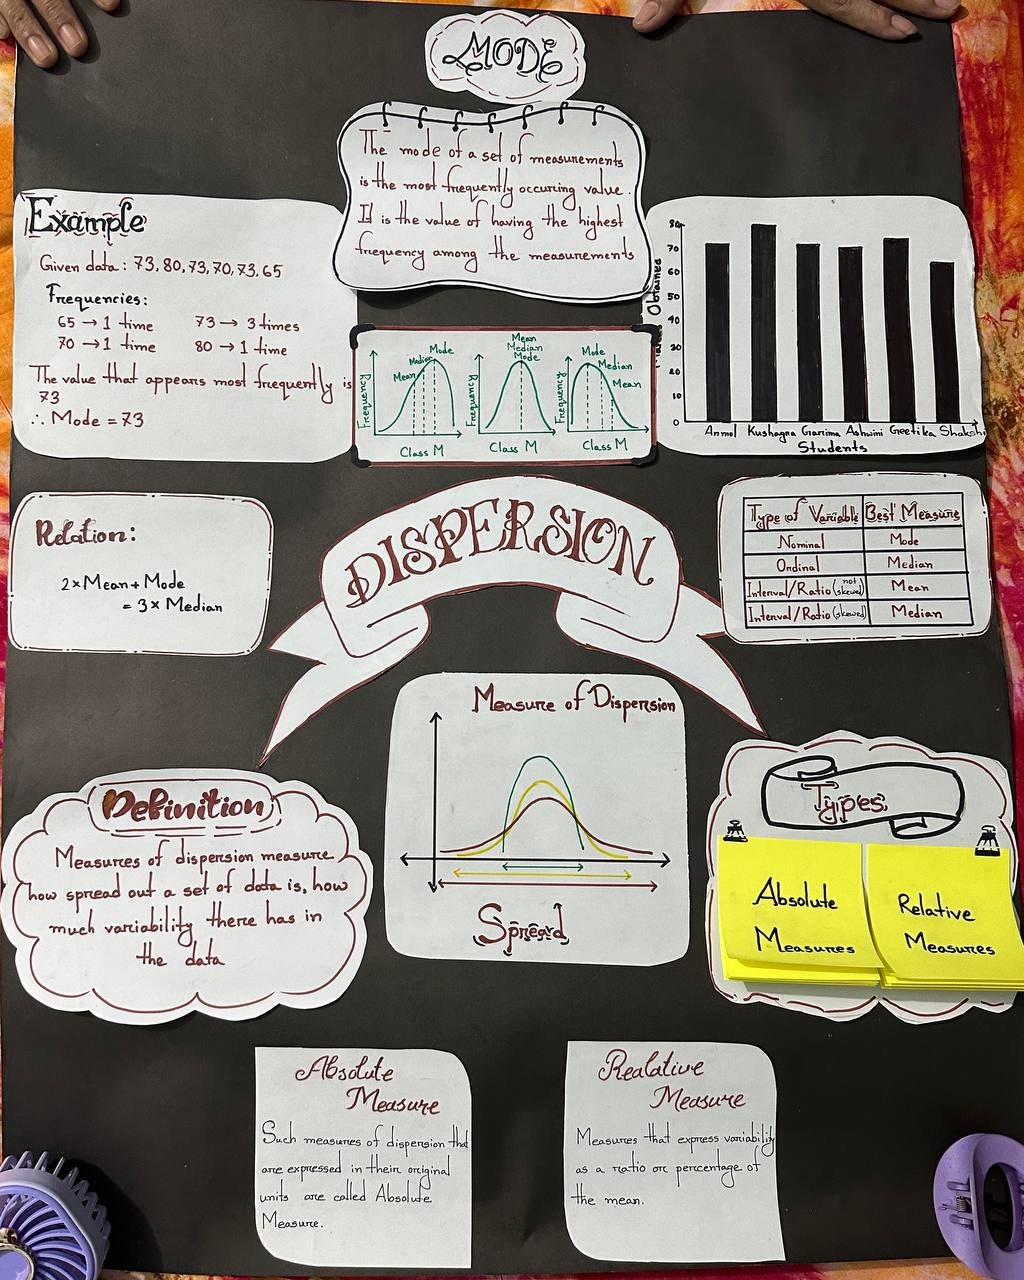 MODE
The mode of a set of measurements
is the most frequently occuring value.
It is the value of having the highest
frequency among the measurements
Example
Given data : 73, 80, 73, 70, 73, 65
Frequencies:
65 → 1 time 73 → 3 times
70 → 1 time 80 → 1 time
The value that appears most frequently is
73
∴ Mode = 73
Frequency
Mean
Median
Mode
Class M
Frequency
Mean
Median
Mode
Class M
Frequency
Mode
Median
Mean
Class M
Obtained
80
70
60
50
40
30
20
10
0
Anmol Kushagra Garima Ashwini Geetika Shakshi
Students
Relation:
2 x Mean + Mode
= 3 x Median
DISPERSION
Type of Variable Best Measure
Nominal Mode
Ordinal Median
Interval/Ratio (not skewed) Mean
Interval/Ratio (skewed) Median
Measure of Dispersion
Spread
Definition
Measures of dispersion measure
how spread out a set of data is, how
much variability there has in
the data
Types
Absolute
Measures
Relative
Measures
Absolute
Measure
Such measures of dispersion that
are expressed in their original
units are called Absolute
Measure.
Realative
Measure
Measures that express variability
as a ratio or percentage of
the mean.